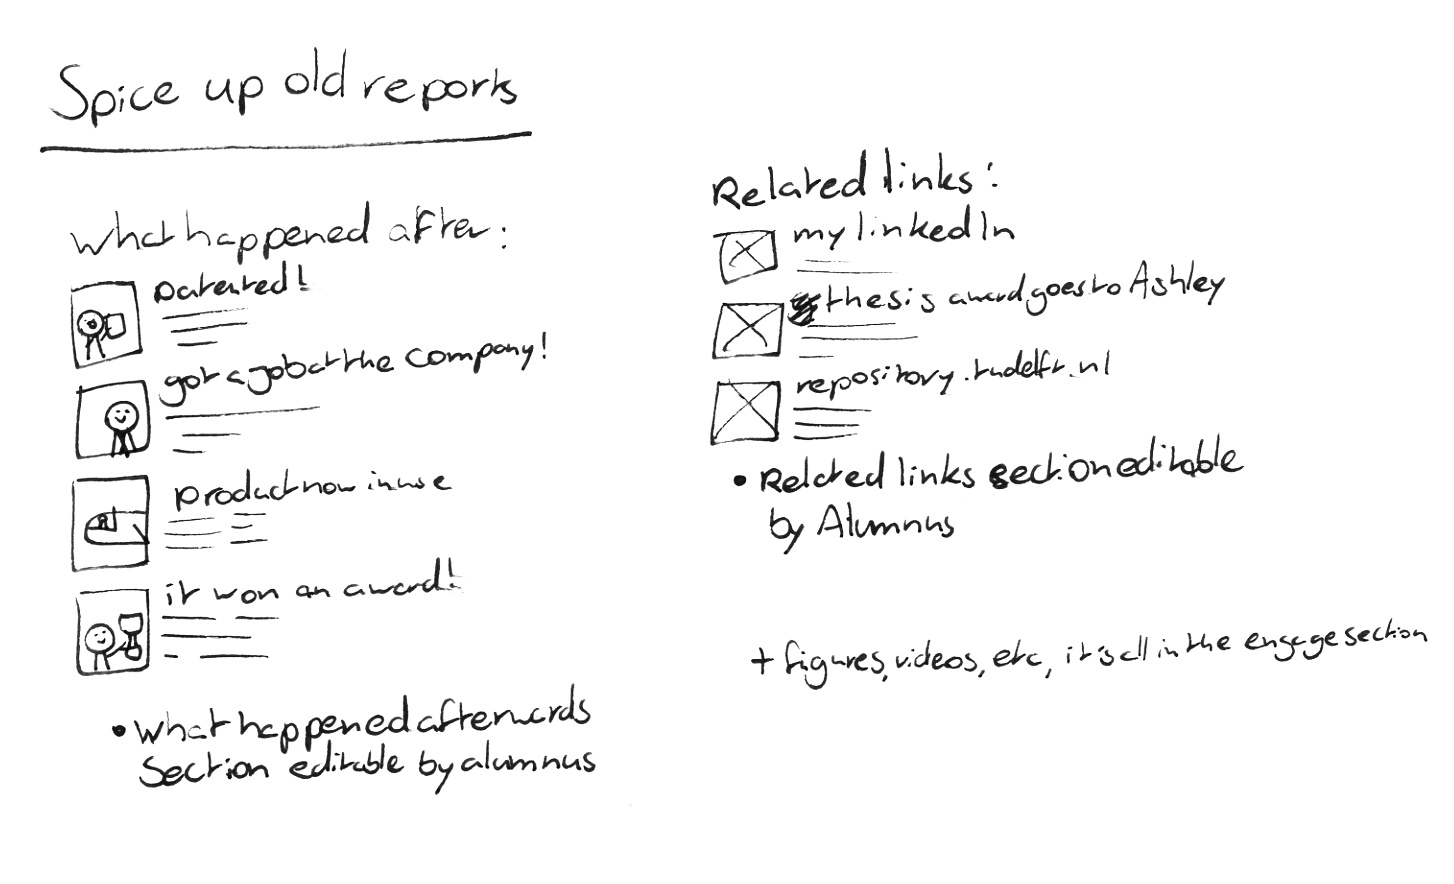 Spice up old reports
What happened after:
patented!
got a job at the company!
product now in use
it won an award!
• What happened afterwards
section editable by alumnus
Related links:
my linkedIn
thesis award goes to Ashley
repository.tudelft.nl
• Related links section editable
by Alumnus
+ figures, videos, etc, it's all in the engage section